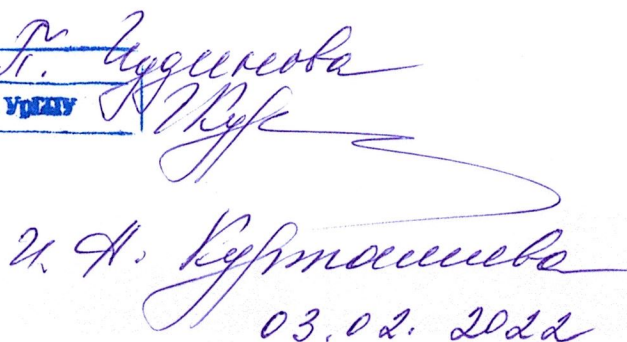 П. Чудинова
УрГПУ
И. А. Курташева
03.02.2022